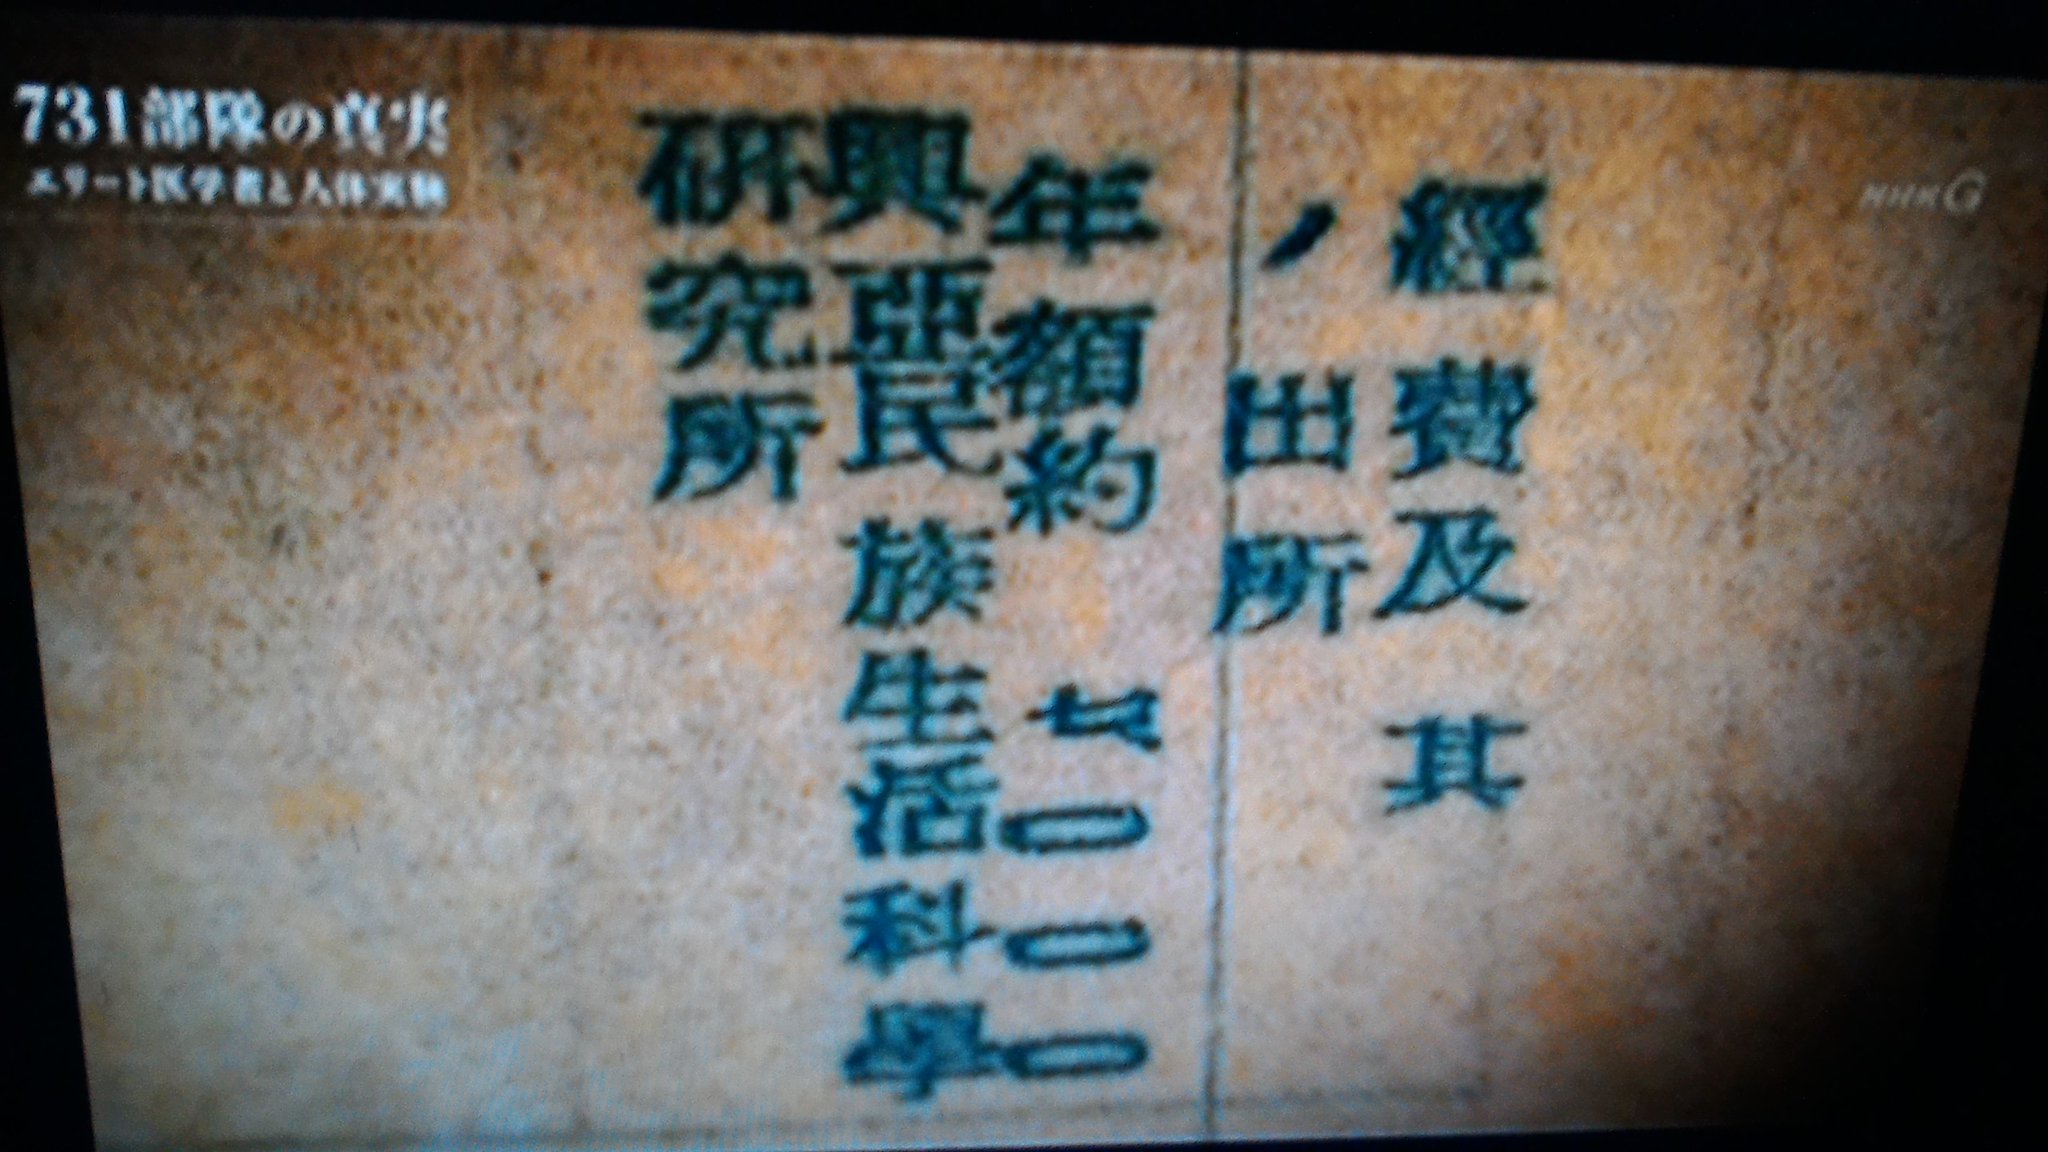 731部隊の真実
エリート医学者と人体実験
NHKG
經費及其
ノ出所
年額約 七〇〇〇
興亞民族生活科學
研究所